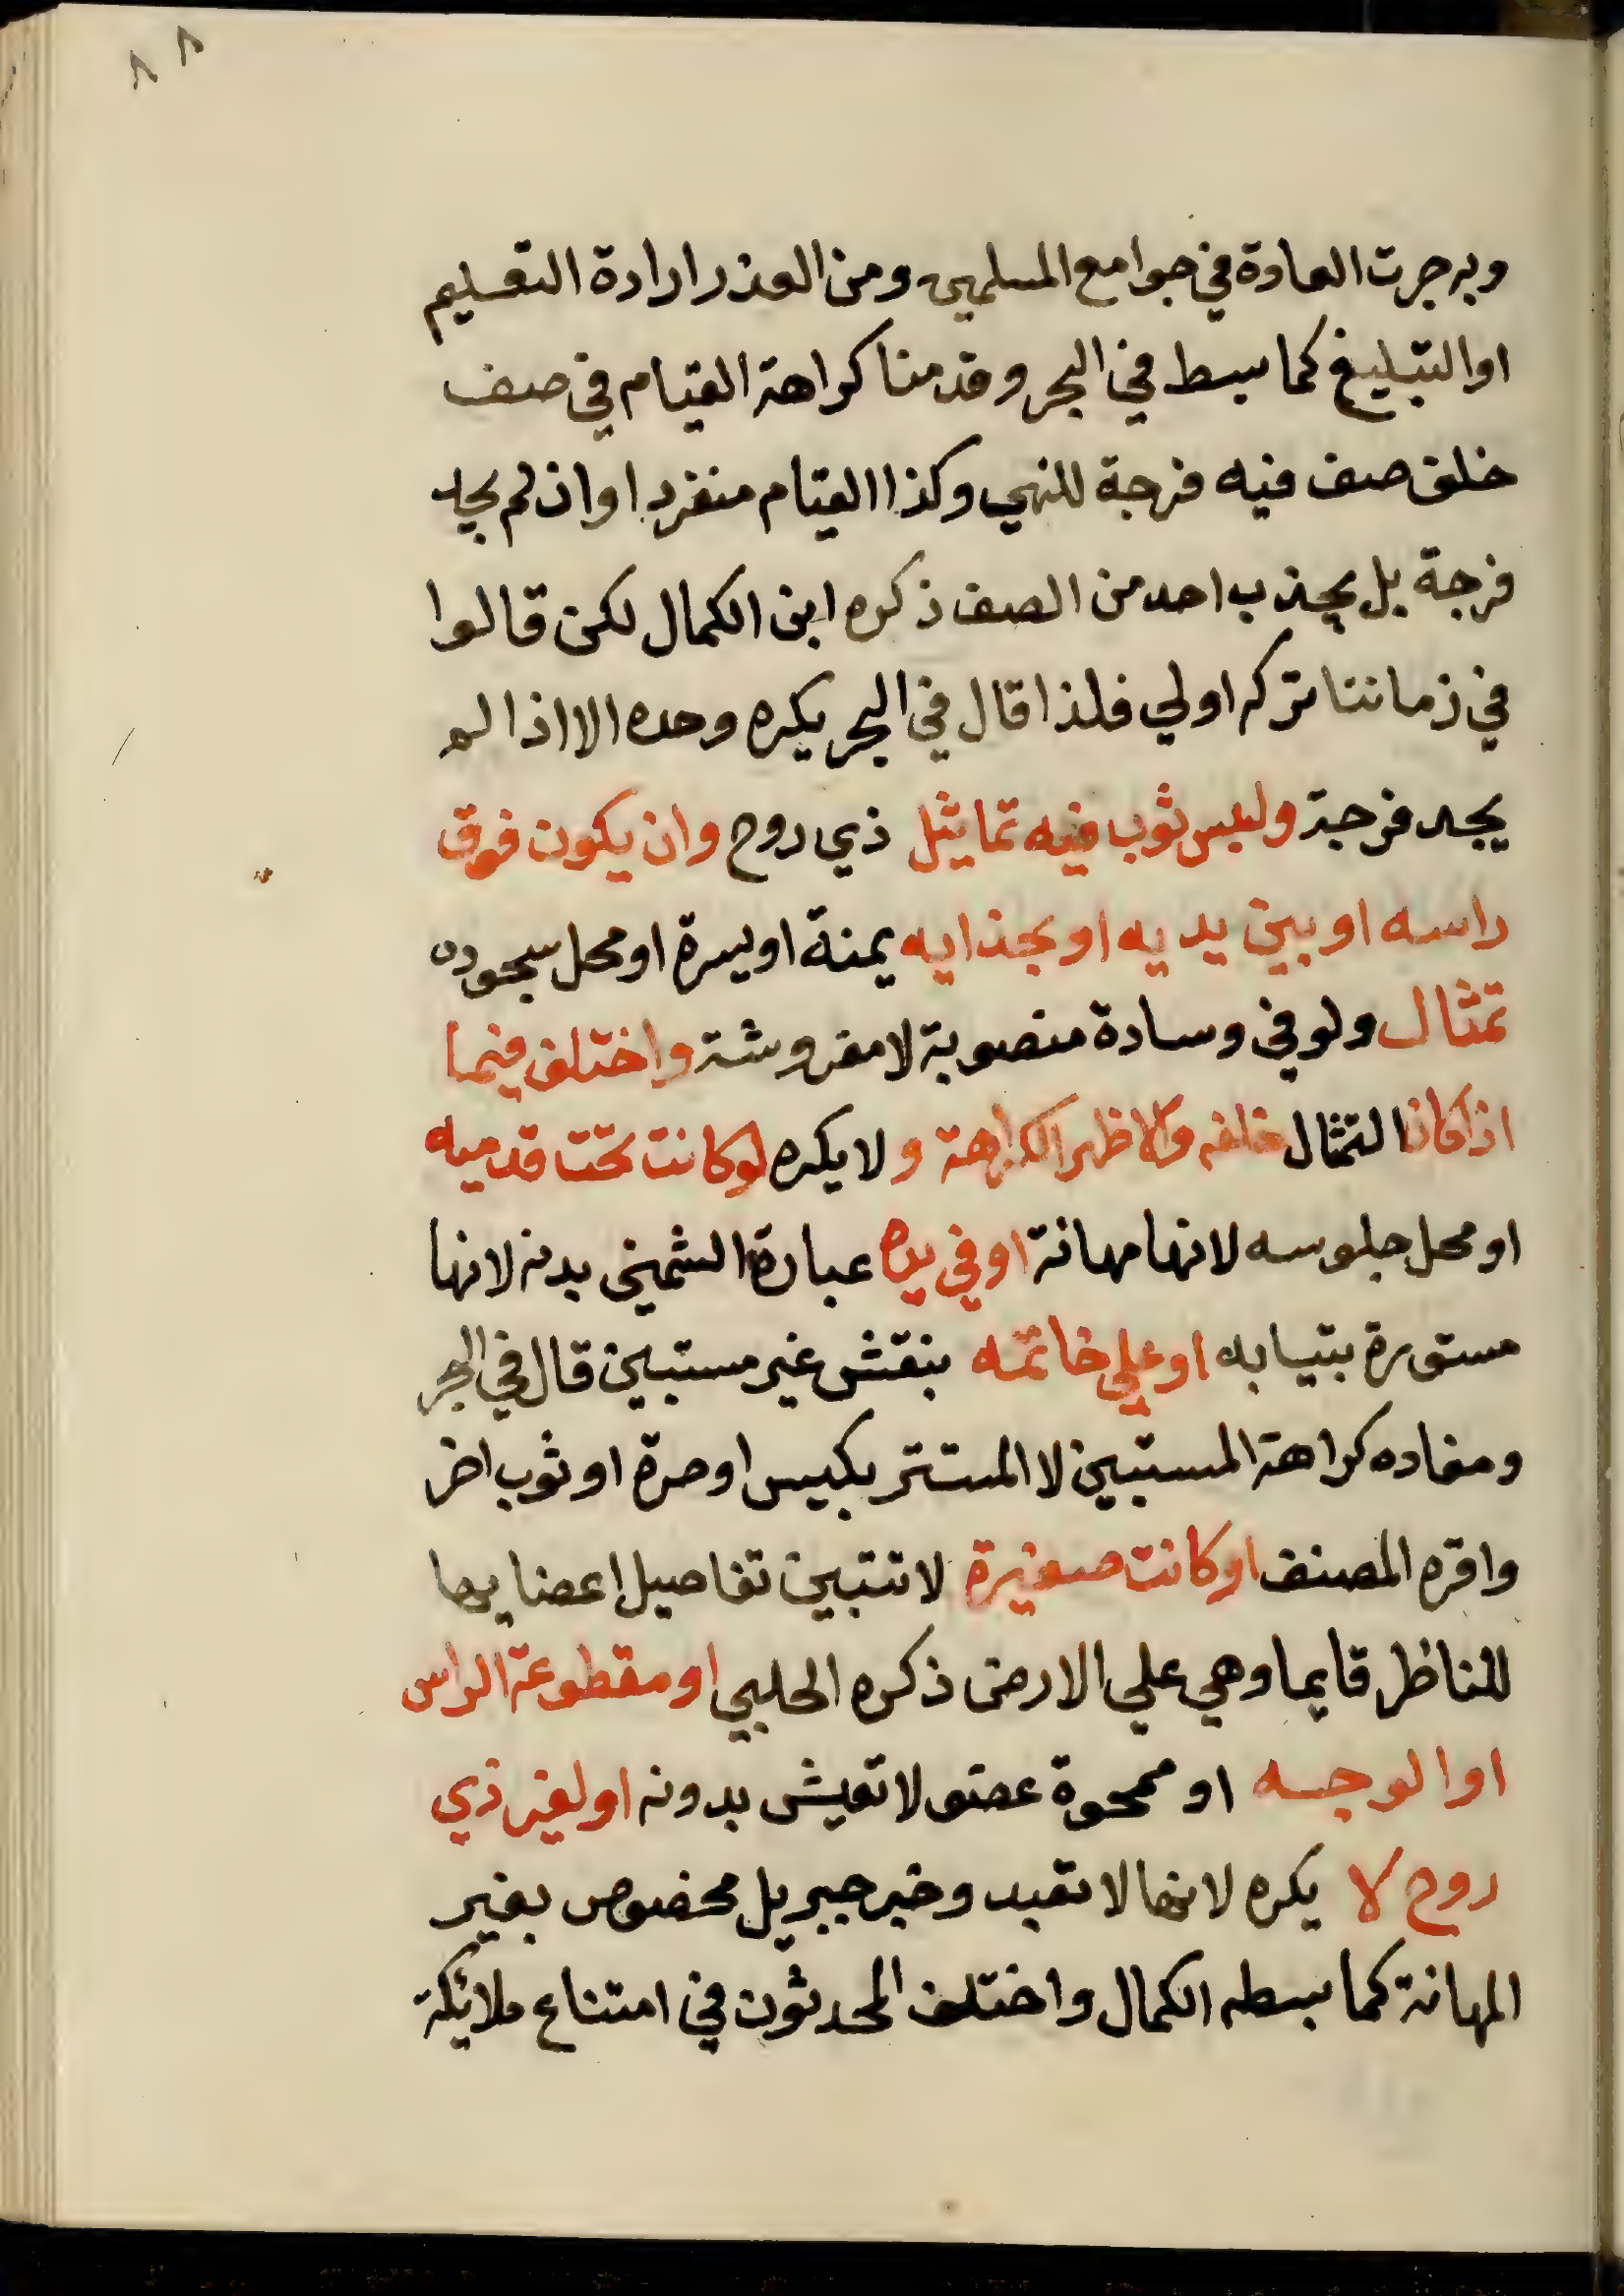 ٨٨
وبه جرت العادة في جوامع المسلمين ومن العذر ارادة التعليم
او التبليغ كما بسط في البحر وقدمنا كراهة القيام في صف
خلف صف فيه فرجة للنهي وكذا القيام منفردا وان لم يجد
فرجة بل يجذب احد من الصف ذكره ابن الكمال لكن قالوا
في زماننا تركه اولي فلذا قال في البحر يكره وحده الا اذا لم
يجد فرجة ولبس ثوب فيه تماثيل ذي روح وان يكون فوق
راسه او بين يديه او بحذايه يمنة او يسرة او محل سجوده
تمثال ولو في وسادة منصوبة لا مفروشة واختلف فيما
اذا كان التمثال خلفه والاظهر الكراهة ولا يكره لو كانت تحت قدميه
او محل جلوسه لانها مهانة او في يده عبارة الشمني بدنه لانها
مستورة بثيابه او علي خاتمه بنقش غير مستبين قال في البحر
ومفاده كراهة المستبين لا المستتر بكيس او صرة او ثوب اخر
واقره المصنف او كانت صغيرة لا تتبين تفاصيل اعضايها
للناظر قايما وهي علي الارض ذكره الحلبي او مقطوعة الراس
او الوجه او ممحوة عضو لا تعيش بدونه او لغير ذي
روح لا يكره لانها لا تعبد وخبر جبريل مخصوص بغير
المهانة كما بسطه الكمال واختلف المحدثون في امتناع ملائكة